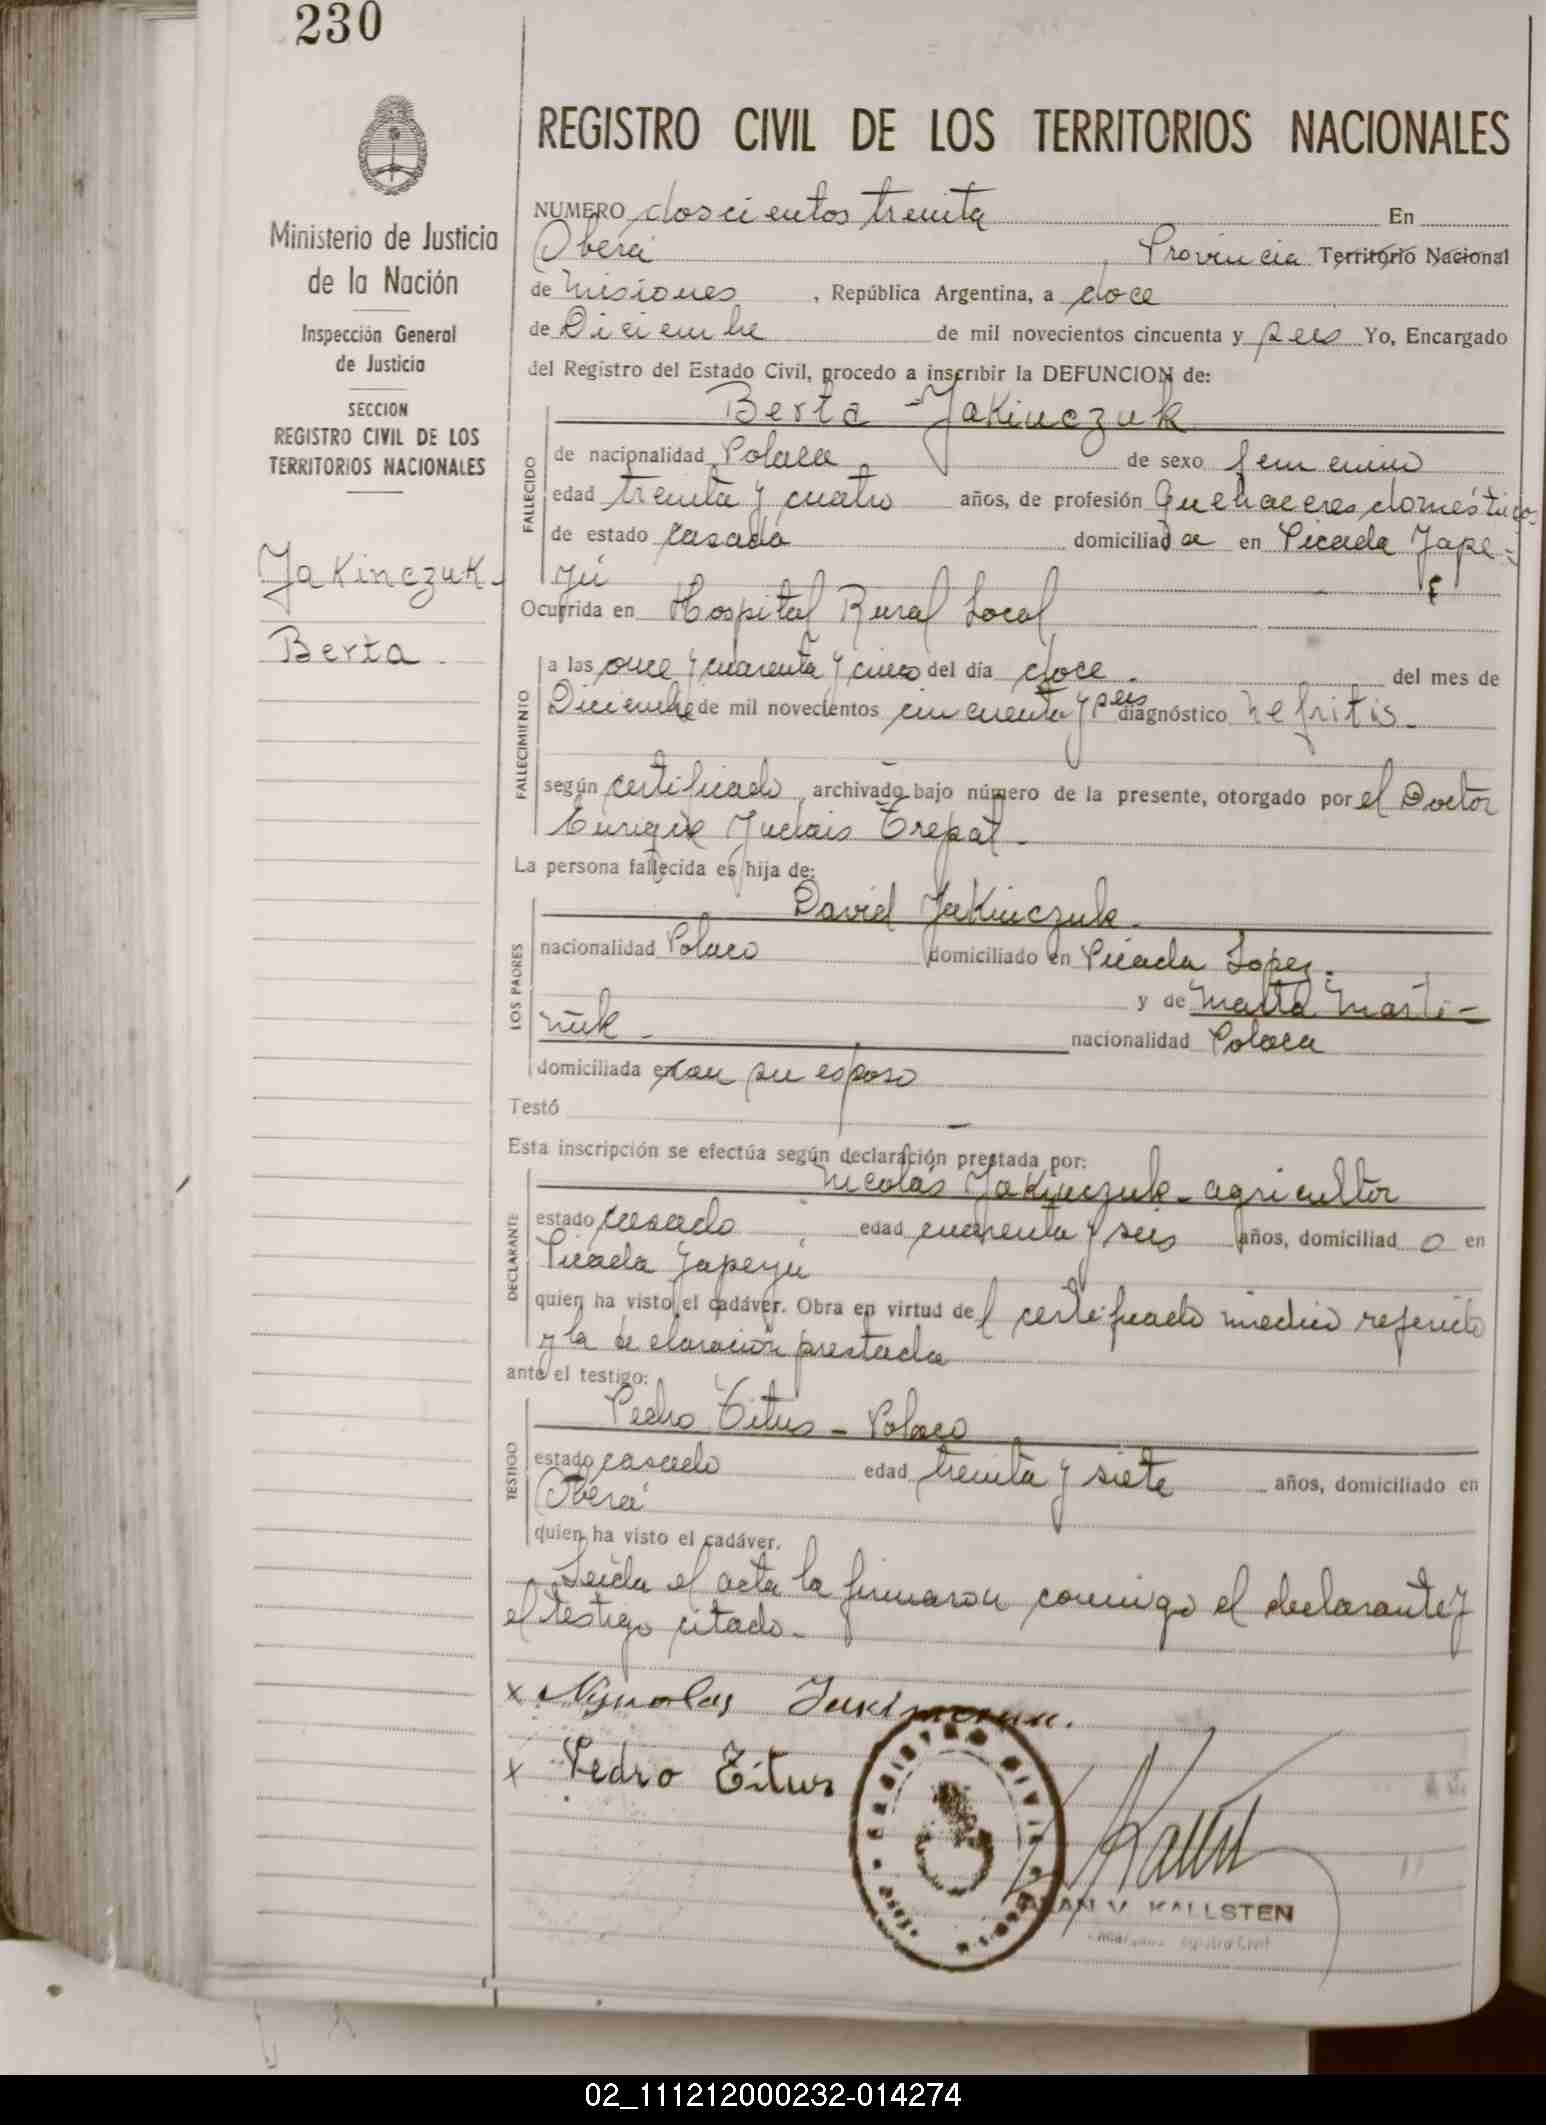 230
REGISTRO CIVIL DE LOS TERRITORIOS NACIONALES
Ministerio de Justicia
de la Nación
Inspección General
de Justicia
SECCION
REGISTRO CIVIL DE LOS
TERRITORIOS NACIONALES
Jakinczuk-
Berta -
NUMERO doscientos treinta En
Oberá, Provincia Territorio Nacional
de Misiones, República Argentina, a doce
de Diciembre de mil novecientos cincuenta y seis Yo, Encargado
del Registro del Estado Civil, procedo a inscribir la DEFUNCION de:
Berta Jakinczuk
FALLECIDO
de nacionalidad Polaca de sexo femenino
edad treinta y cuatro años, de profesión Quehaceres domésticos
de estado casada domiciliada en Picada Yape-
yú
Ocurrida en Hospital Rural Local
FALLECIMIENTO
a las once y cuarenta y cinco del día doce - del mes de
Diciembre de mil novecientos cincuenta y seis diagnóstico nefritis -
según certificado, archivado bajo número de la presente, otorgado por el Doctor
Enrique Trepat -
La persona fallecida es hija de:
LOS PADRES
David Jakinczuk -
nacionalidad Polaco domiciliado en Picada Lopez -
y de Marta Marti-
niuk - nacionalidad Polaca
domiciliada en con su esposo
Testó —
Esta inscripción se efectúa según declaración prestada por:
DECLARANTE
Nicolás Jakinczuk - agricultor
estado casado edad cuarenta y seis años, domiciliado en
Picada Yapeyú
quien ha visto el cadáver. Obra en virtud del certificado médico referido
y la declaración prestada
ante el testigo:
TESTIGO
Pedro Titus - Polaco
estado casado edad treinta y siete años, domiciliado en
Oberá
quien ha visto el cadáver.
Leída el acta la firmaron conmigo el declarante y
el testigo citado -
x
x Pedro Titus
REGISTRO CIVIL
KALLSTEN
02_111212000232-014274